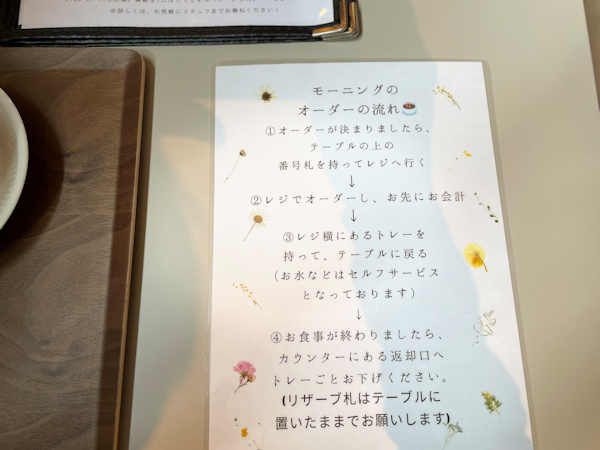 詳しくは、お気軽にスタッフまでお尋ねください
モーニングの
オーダーの流れ☕
①オーダーが決まりましたら、
テーブルの上の
番号札を持ってレジへ行く
↓
②レジでオーダーし、お先にお会計
↓
③レジ横にあるトレーを
持って、テーブルに戻る
(お水などはセルフサービス
となっております)
↓
④お食事が終わりましたら、
カウンターにある返却口へ
トレーごとお下げください。
(リザーブ札はテーブルに
置いたままでお願いします)